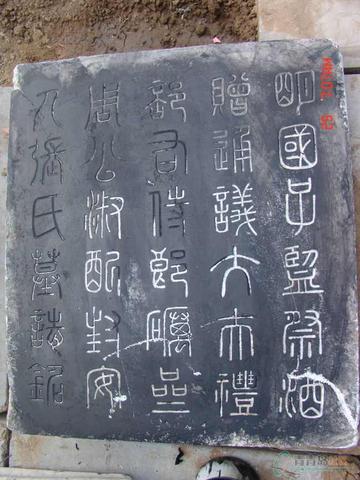 明國子監祭酒
贈通議大夫禮
部右侍郎礪齋
周公淑配封安
人張氏墓誌銘